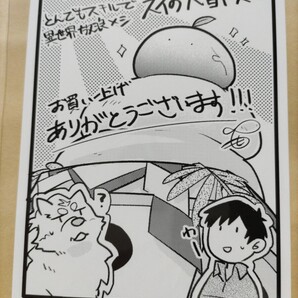 とんでもスキルで
異世界放浪メシ
スイの大冒険
お買い上げ
ありがとうございます!!!
?
わー